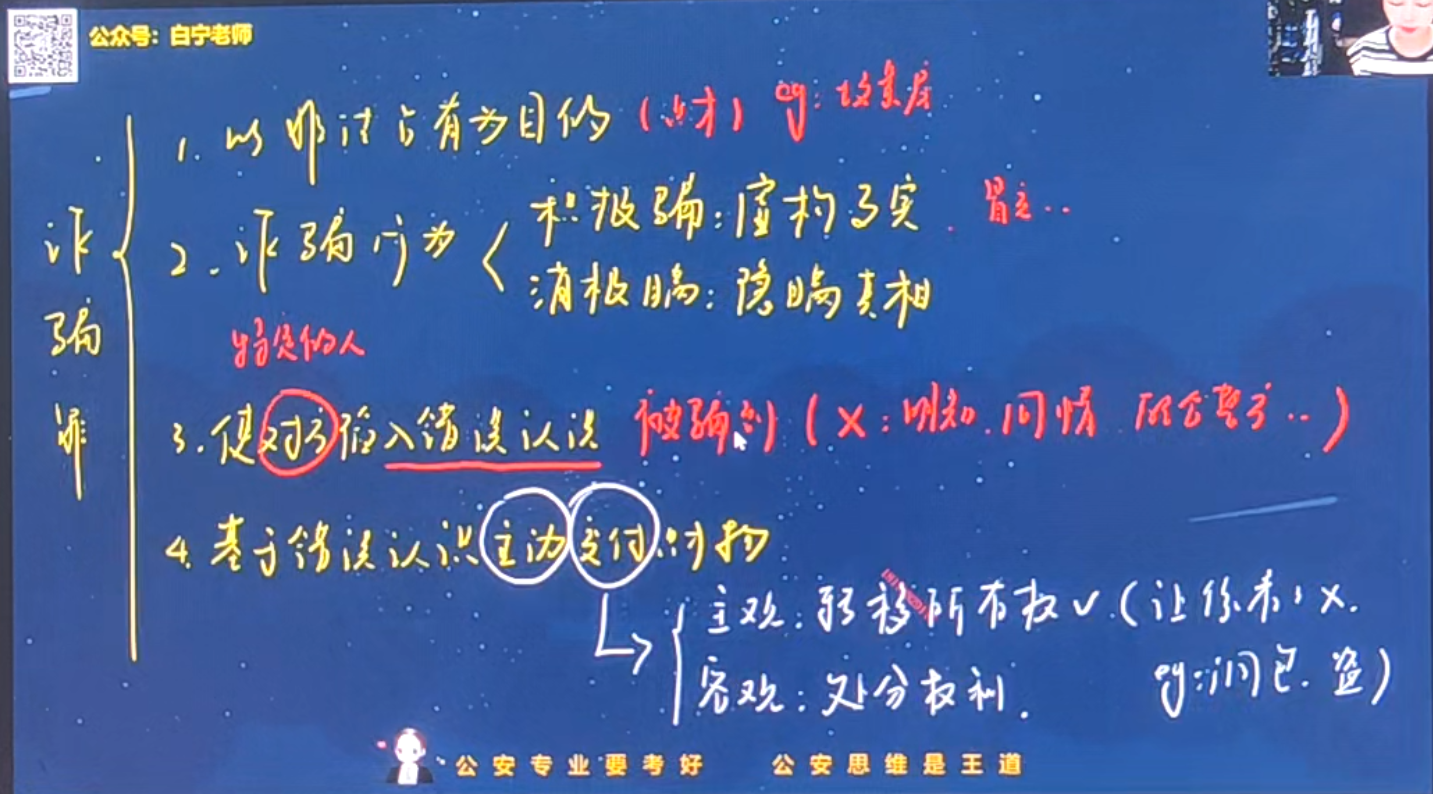 公众号：白宁老师
诈骗罪
1. 以非法占有为目的（占才）eg：
2. 诈骗行为
积极骗：虚构事实
消极瞒：隐瞒真相
特定的人
3. 使对方陷入错误认识 被骗到（X：明知、同情
4. 基于错误认识主动交付财物
主观：转移所有权√（让你看：X.
客观：处分权利.
eg：调包. 盗）
公安专业要考好 公安思维是王道